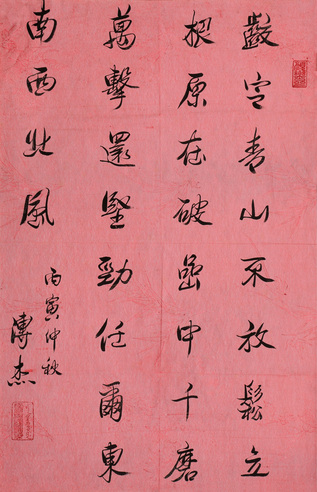 齩定青山不放鬆立
根原在破嵒中千磨
萬擊還堅勁任爾東
南西北風
丙寅仲秋
溥杰